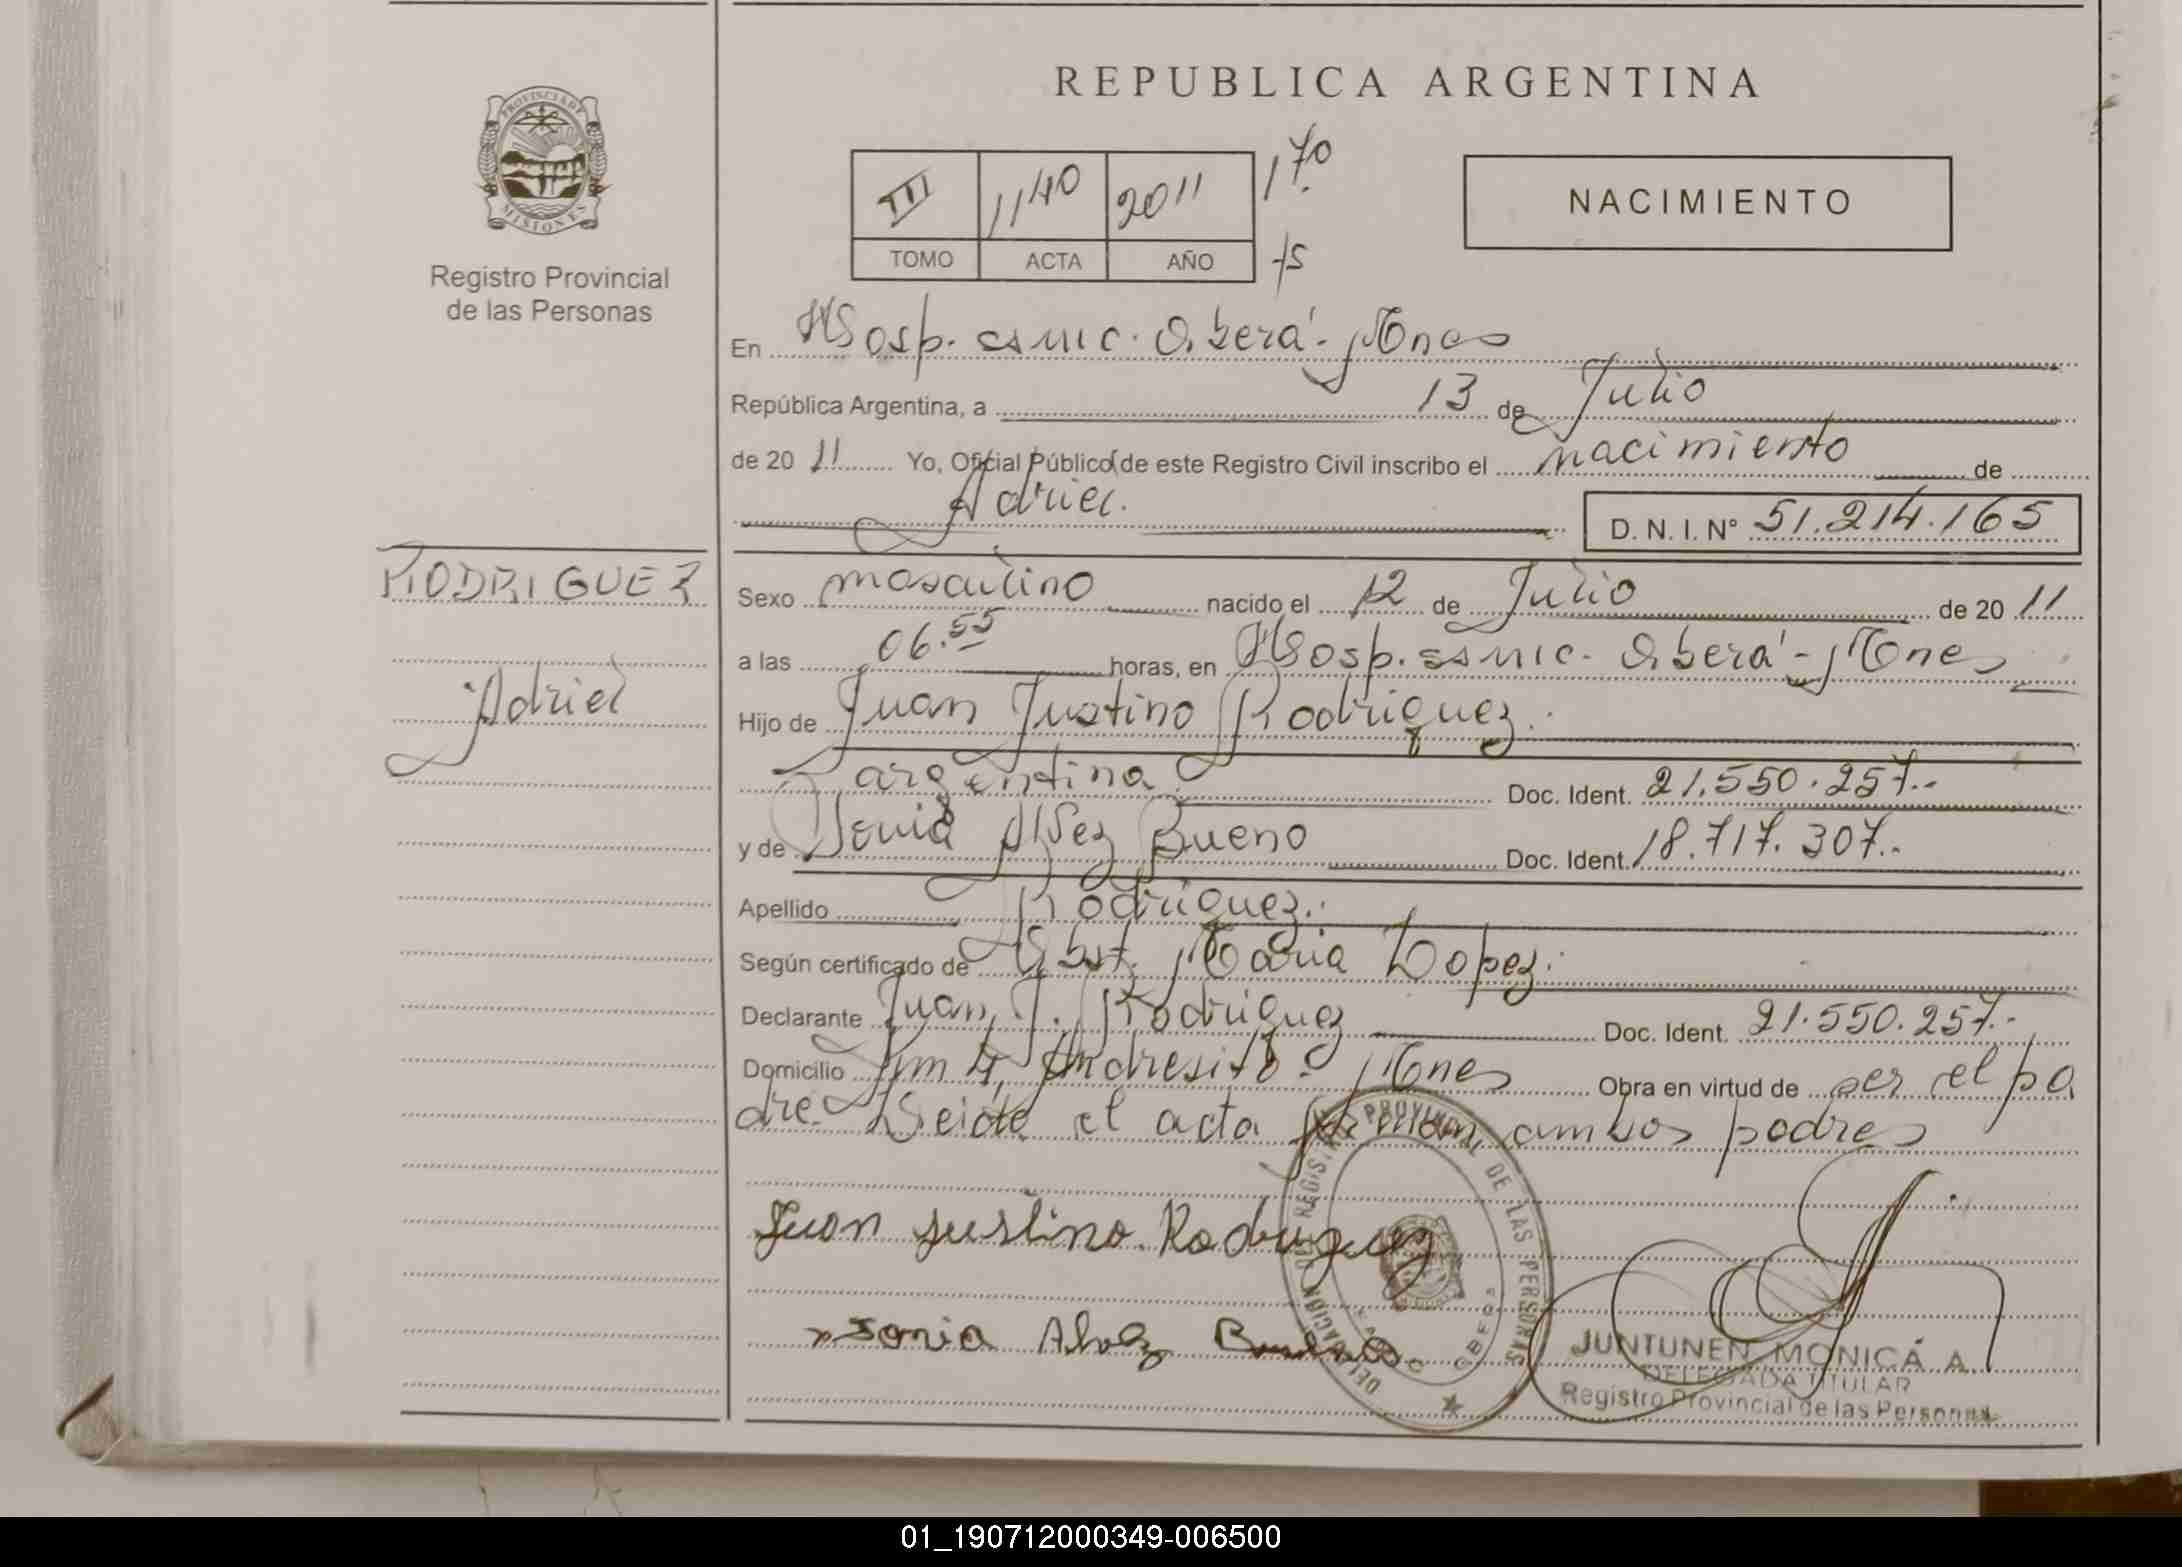 PROVINCIA DE
MISIONES
Registro Provincial
de las Personas
RODRIGUEZ
Adriel
REPUBLICA ARGENTINA
III 1140 2011 170
TOMO ACTA AÑO
NACIMIENTO
En Hosp. Oberá - Mnes
República Argentina, a 13 de Julio
de 20 11 Yo, Oficial Público de este Registro Civil inscribo el nacimiento de
Adriel.
D. N. I. Nº 51.214.165
Sexo masculino nacido el 12 de Julio de 20 11
a las 06.55 horas, en Hosp. Oberá - Mnes
Hijo de Juan Justino Rodriguez.
argentina Doc. Ident. 21.550.257.-
y de Sonia Alvez Bueno Doc. Ident. 18.717.307.-
Apellido Rodriguez.
Según certificado de Obst. Maria Lopez.
Declarante Juan J. Rodriguez Doc. Ident. 21.550.257.-
Domicilio Km 4, Andresito - Mnes Obra en virtud de ser el pa
dre. el acta ambos padres
Juan Justino Rodriguez
Sonia Alvez Bueno
DELEGACION DEL REGISTRO PROVINCIAL DE LAS PERSONAS
OBERA
JUNTUNEN MONICA A
DELEGADA TITULAR
Registro Provincial de las Personas
01_190712000349-006500